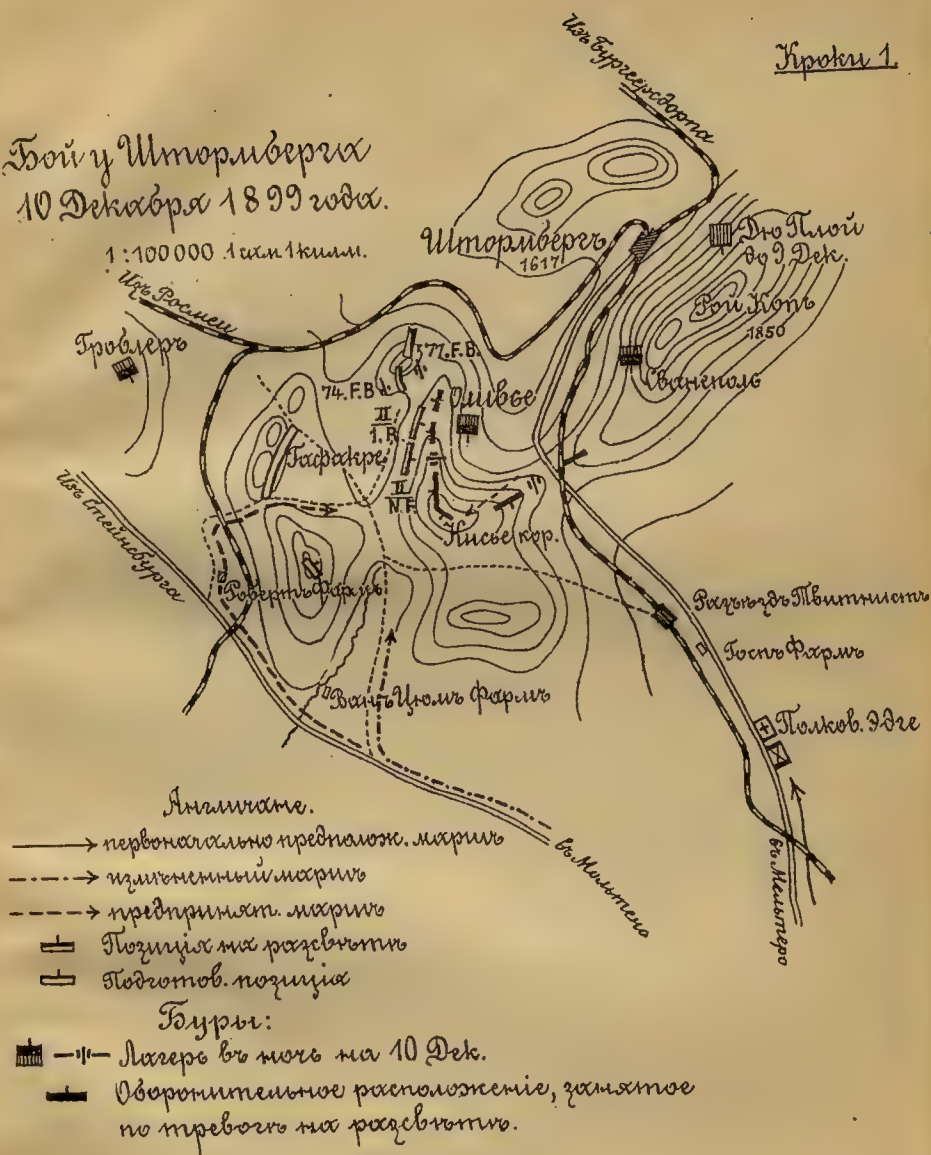 Кроки 1.
Изъ Бургерсдорпа
Бой у Штормберга
10 Декабря 1899 года.
1:100000 1 сам 1 килм.
Штормбергъ
1617
Дю Плой
до 9 Дек.
Рой Копъ
1850
Сванеполь
Изъ Росмед
Гроблеръ
77.F.B.
74.F.B.
Оливье
II
1.R.
Гафакре
II
N.F.
Кисье кор.
Изъ Стейнсбурга
Робертъ Фармъ
Разъѣздъ Твитнистъ
Госпъ Фармъ
Ванъ Цюмъ Фармъ
Полков. Эдге
въ Мольтено
въ Мельтеро
Англичане.
первоначально предполож. маршъ
измѣненный маршъ
предпринят. маршъ
Позиція на разсвѣтѣ
Подготов. позиція
Буры:
Лагерь въ ночь на 10 Дек.
Оборонительное расположеніе, занятое
по тревогѣ на разсвѣтѣ.